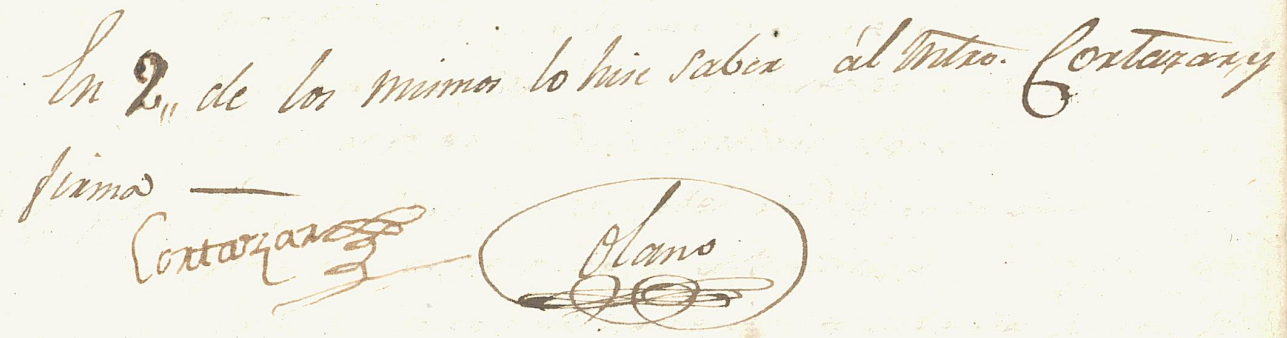 En 2,, de los mismos lo hise saber ál Mtro. Cortazar, y
firma —
Cortazar Olano